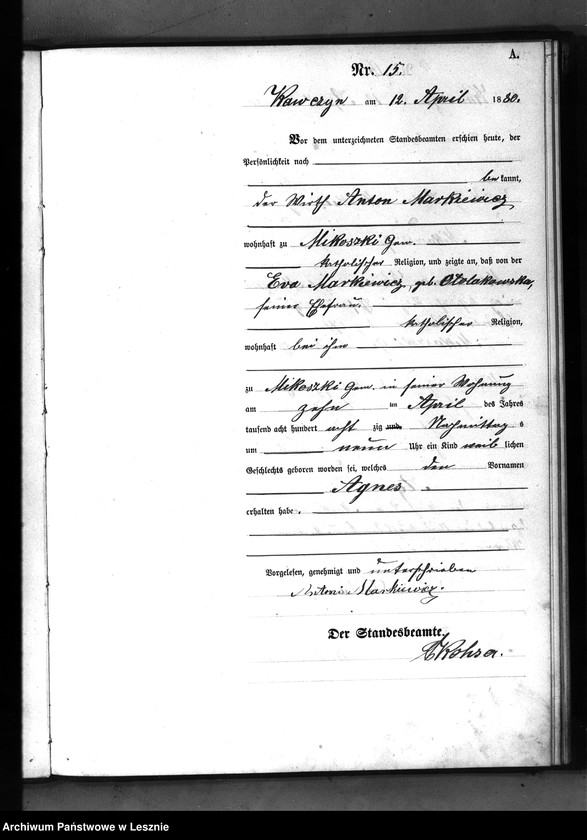 A.
Nr. 15.
Kawczyn am 12. April 1880.
Vor dem unterzeichneten Standesbeamten erschien heute, der
Persönlichkeit nach
be kannt,
der Wirth Anton Markiewicz
wohnhaft zu Mikoszki Gem.
katholischer Religion, und zeigte an, daß von der
Eva Markiewicz, geb. Otolakowska,
seiner Ehefrau,
katholischer Religion,
wohnhaft bei ihm
zu Mikoszki Gem. in seiner Wohnung
am zehn im April des Jahres
tausend acht hundert acht zig und Nachmittag s
um neun Uhr ein Kind weib lichen
Geschlechts geboren worden sei, welches den Vornamen
Agnes
erhalten habe.
Vorgelesen, genehmigt und unterschrieben
Antoni Markiewicz.
Der Standesbeamte.
Archiwum Państwowe w Lesznie